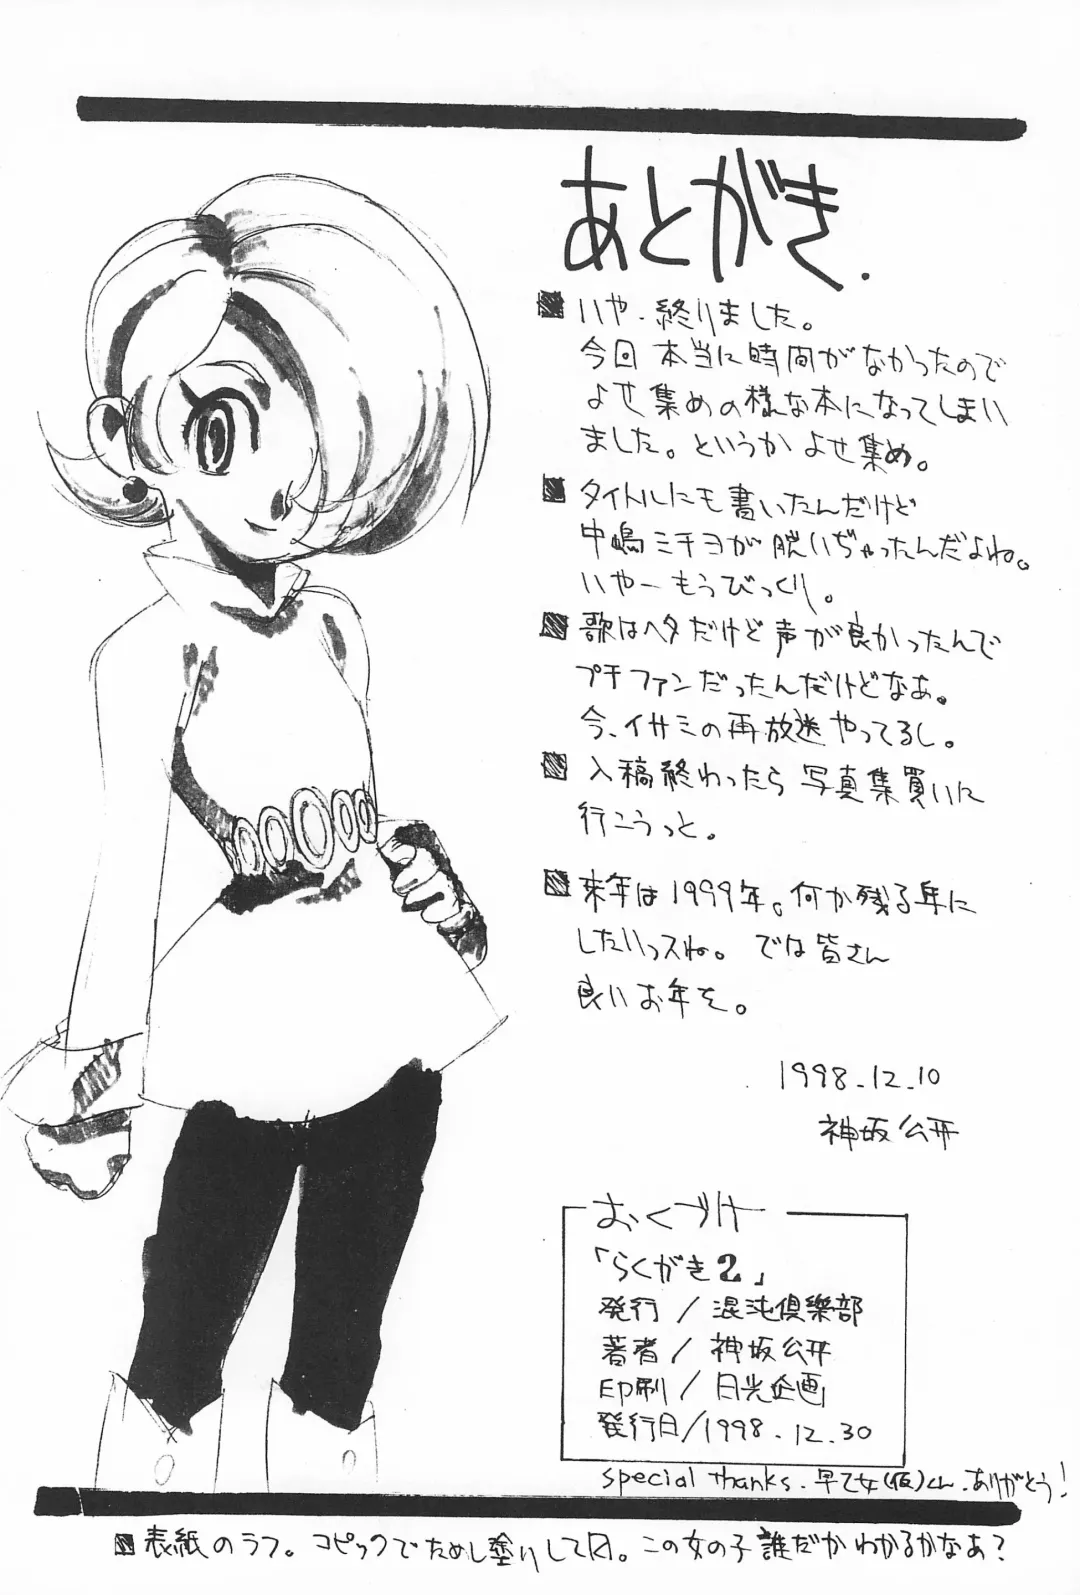 あとがき.
■いや、終りました。
今回 本当に時間がなかったので
よせ集めの様な本になってしまい
ました。というか よせ集め。
■タイトルにも書いたんだけど
中嶋ミチヨが脱いぢゃったんだよね。
いやーもうびっくり。
■歌はヘタだけど声が良かったんで
プチファンだったんだけどなあ。
今、イサミの再放送やってるし。
■入稿終わったら写真集買いに
行こうっと。
■来年は1999年。何か残る年に
したいっスね。では皆さん
良いお年を。
1998.12.10
神坂公平
おくづけ
「らくがき2」
発行/混沌倶樂部
著者/神坂公平
印刷/日光企画
発行日/1998.12.30
special thanks.早乙女(仮)くん.ありがとう!
■表紙のラフ。コピックでためし塗りして。この女の子誰だかわかるかなあ?